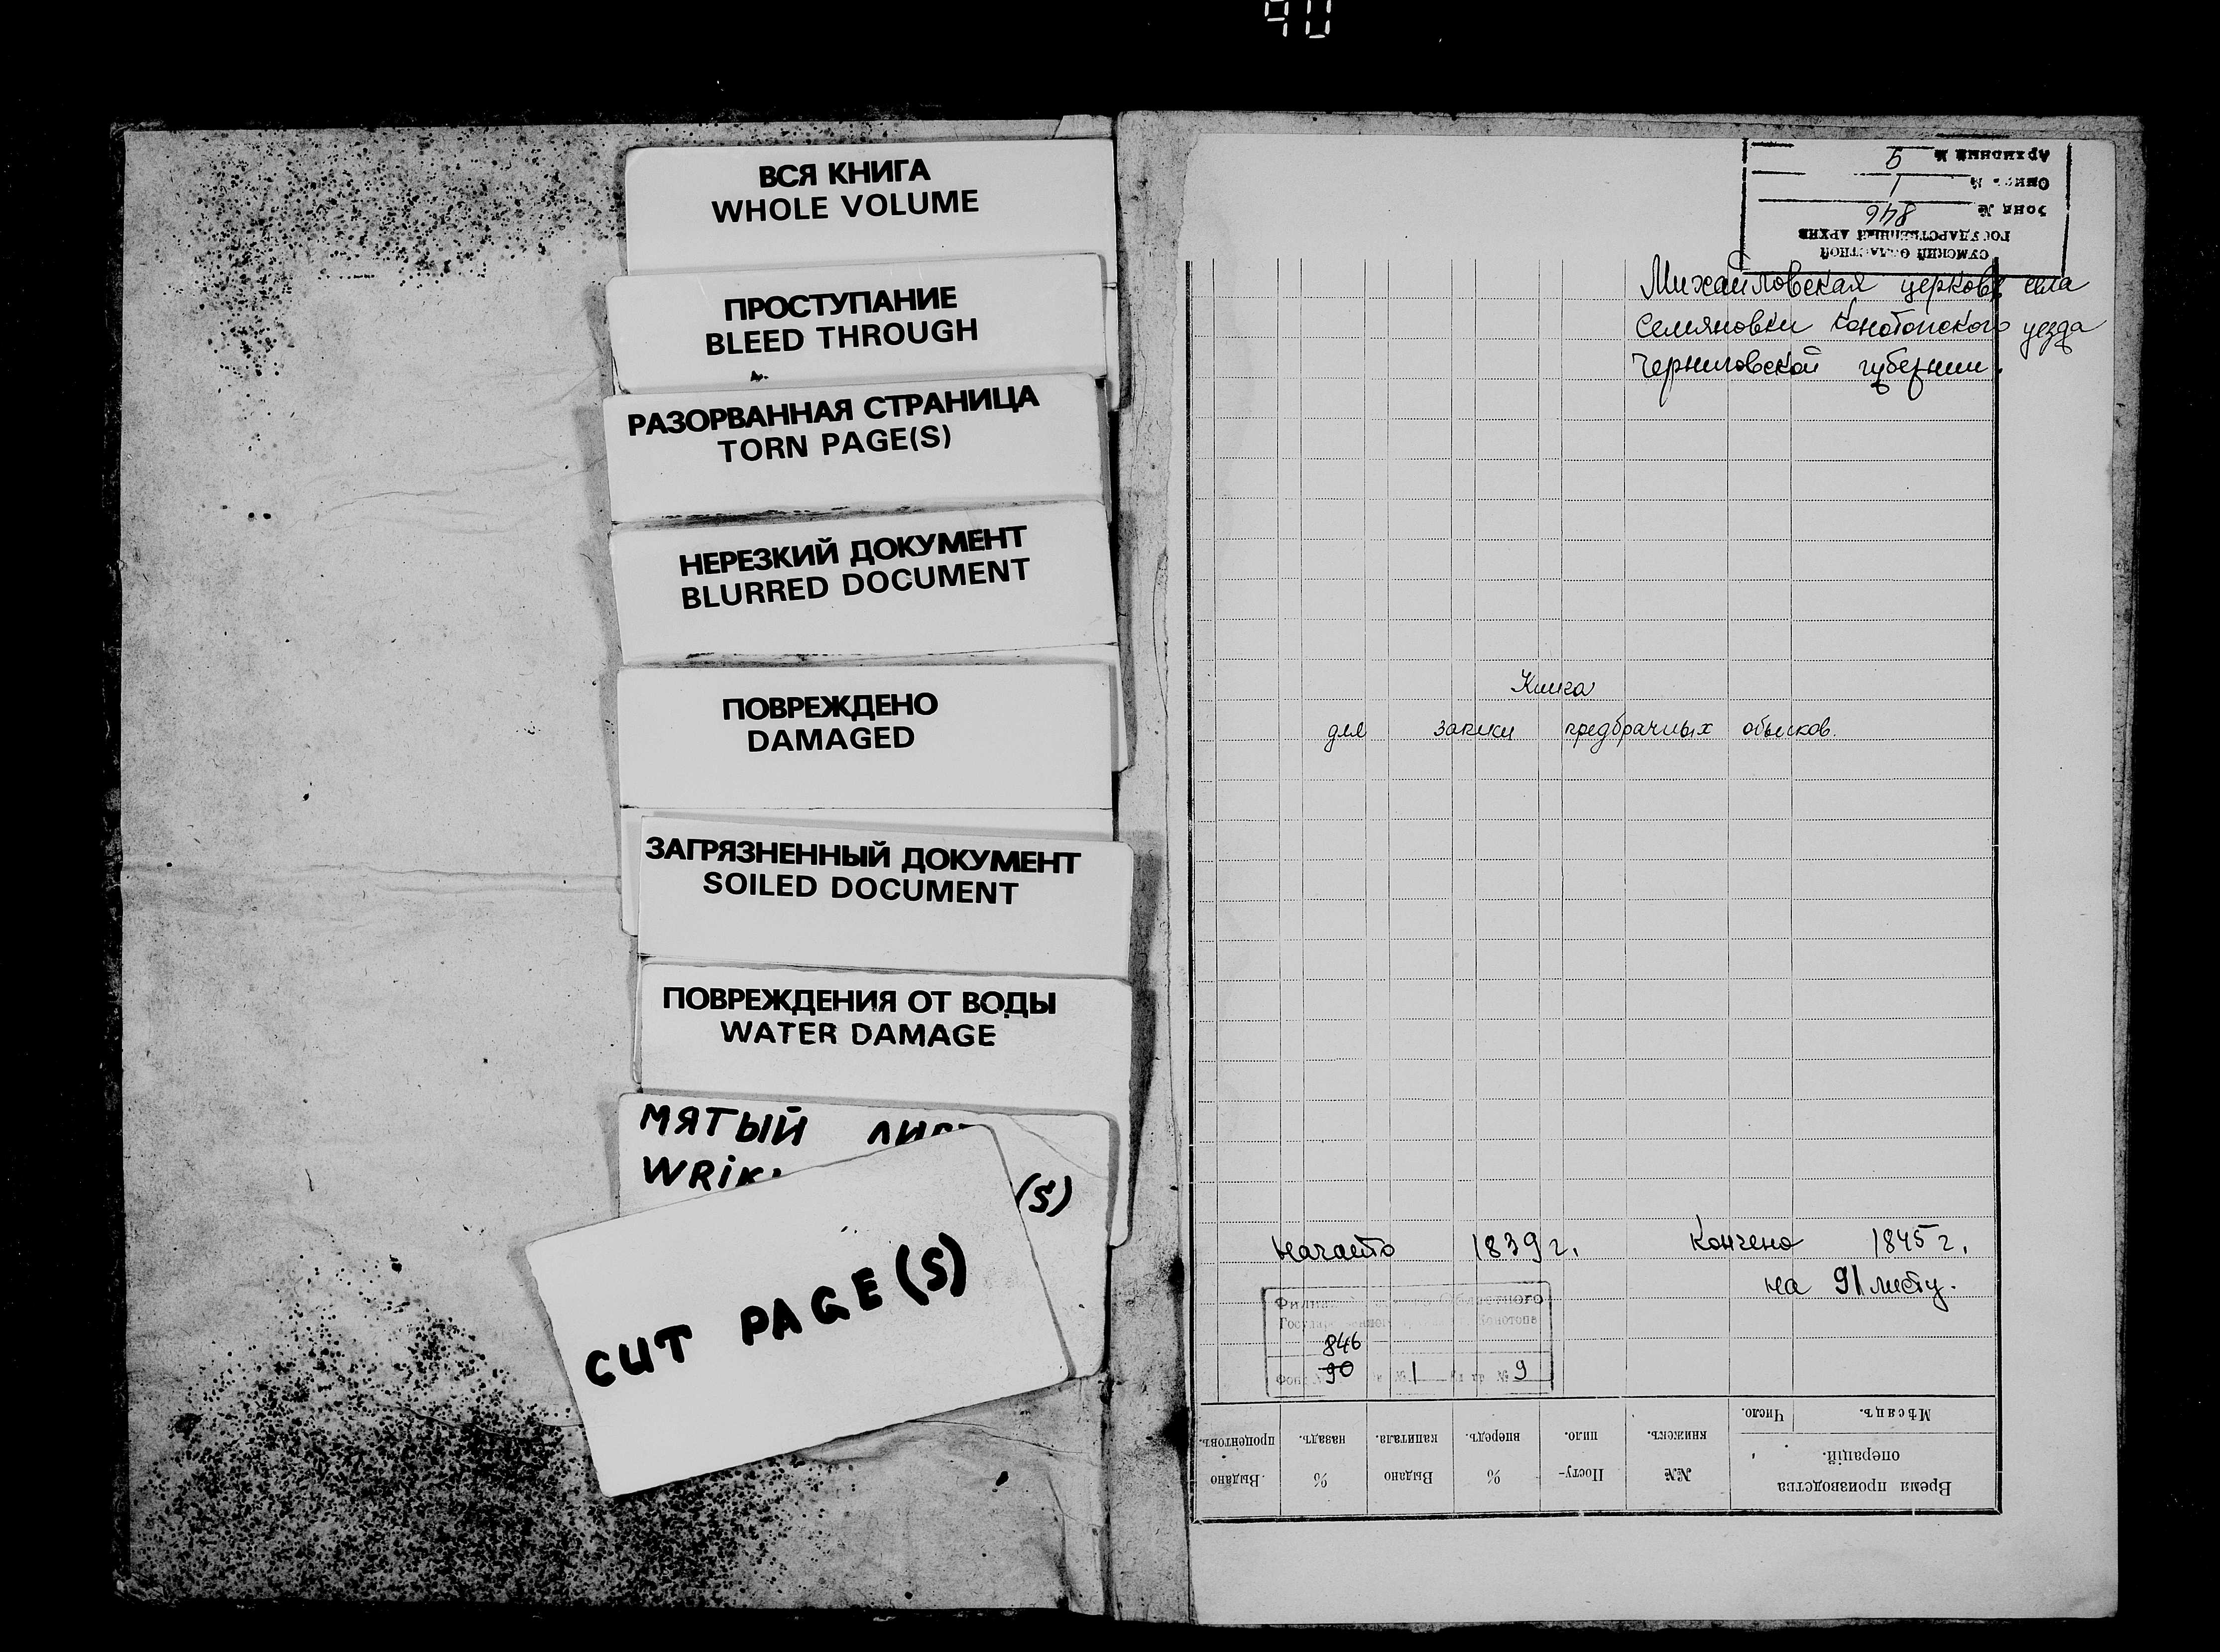 ВСЯ КНИГА
WHOLE VOLUME
ПРОСТУПАНИЕ
BLEED THROUGH
РАЗОРВАННАЯ СТРАНИЦА
TORN PAGE(S)
НЕРЕЗКИЙ ДОКУМЕНТ
BLURRED DOCUMENT
ПОВРЕЖДЕНО
DAMAGED
ЗАГРЯЗНЕННЫЙ ДОКУМЕНТ
SOILED DOCUMENT
ПОВРЕЖДЕНИЯ ОТ ВОДЫ
WATER DAMAGE
МЯТЫЙ
(S)
CUT PAGE(S)
СУМСКИЙ ОБЛАСТНОЙ
ГОСУДАРСТВЕННЫЙ АРХИВ
Фонд № 846
Опись № 1
Архивный №
Михайловская церковь села
Семяновки Конотопского уезда
Черниговской губернии.
Книга
для записи предбрачных обысков.
Начато 1839 г. Кончено 1845 г.
на 91 листу.
Филиал Областного
Конотопе
846
90 № 1 № 9
Время производства операцій.
Мѣсяцъ. Число.
№№ книжекъ.
Посту-пило.
% впередъ.
Выдано капитала.
% назадъ.
Выдано процентовъ.